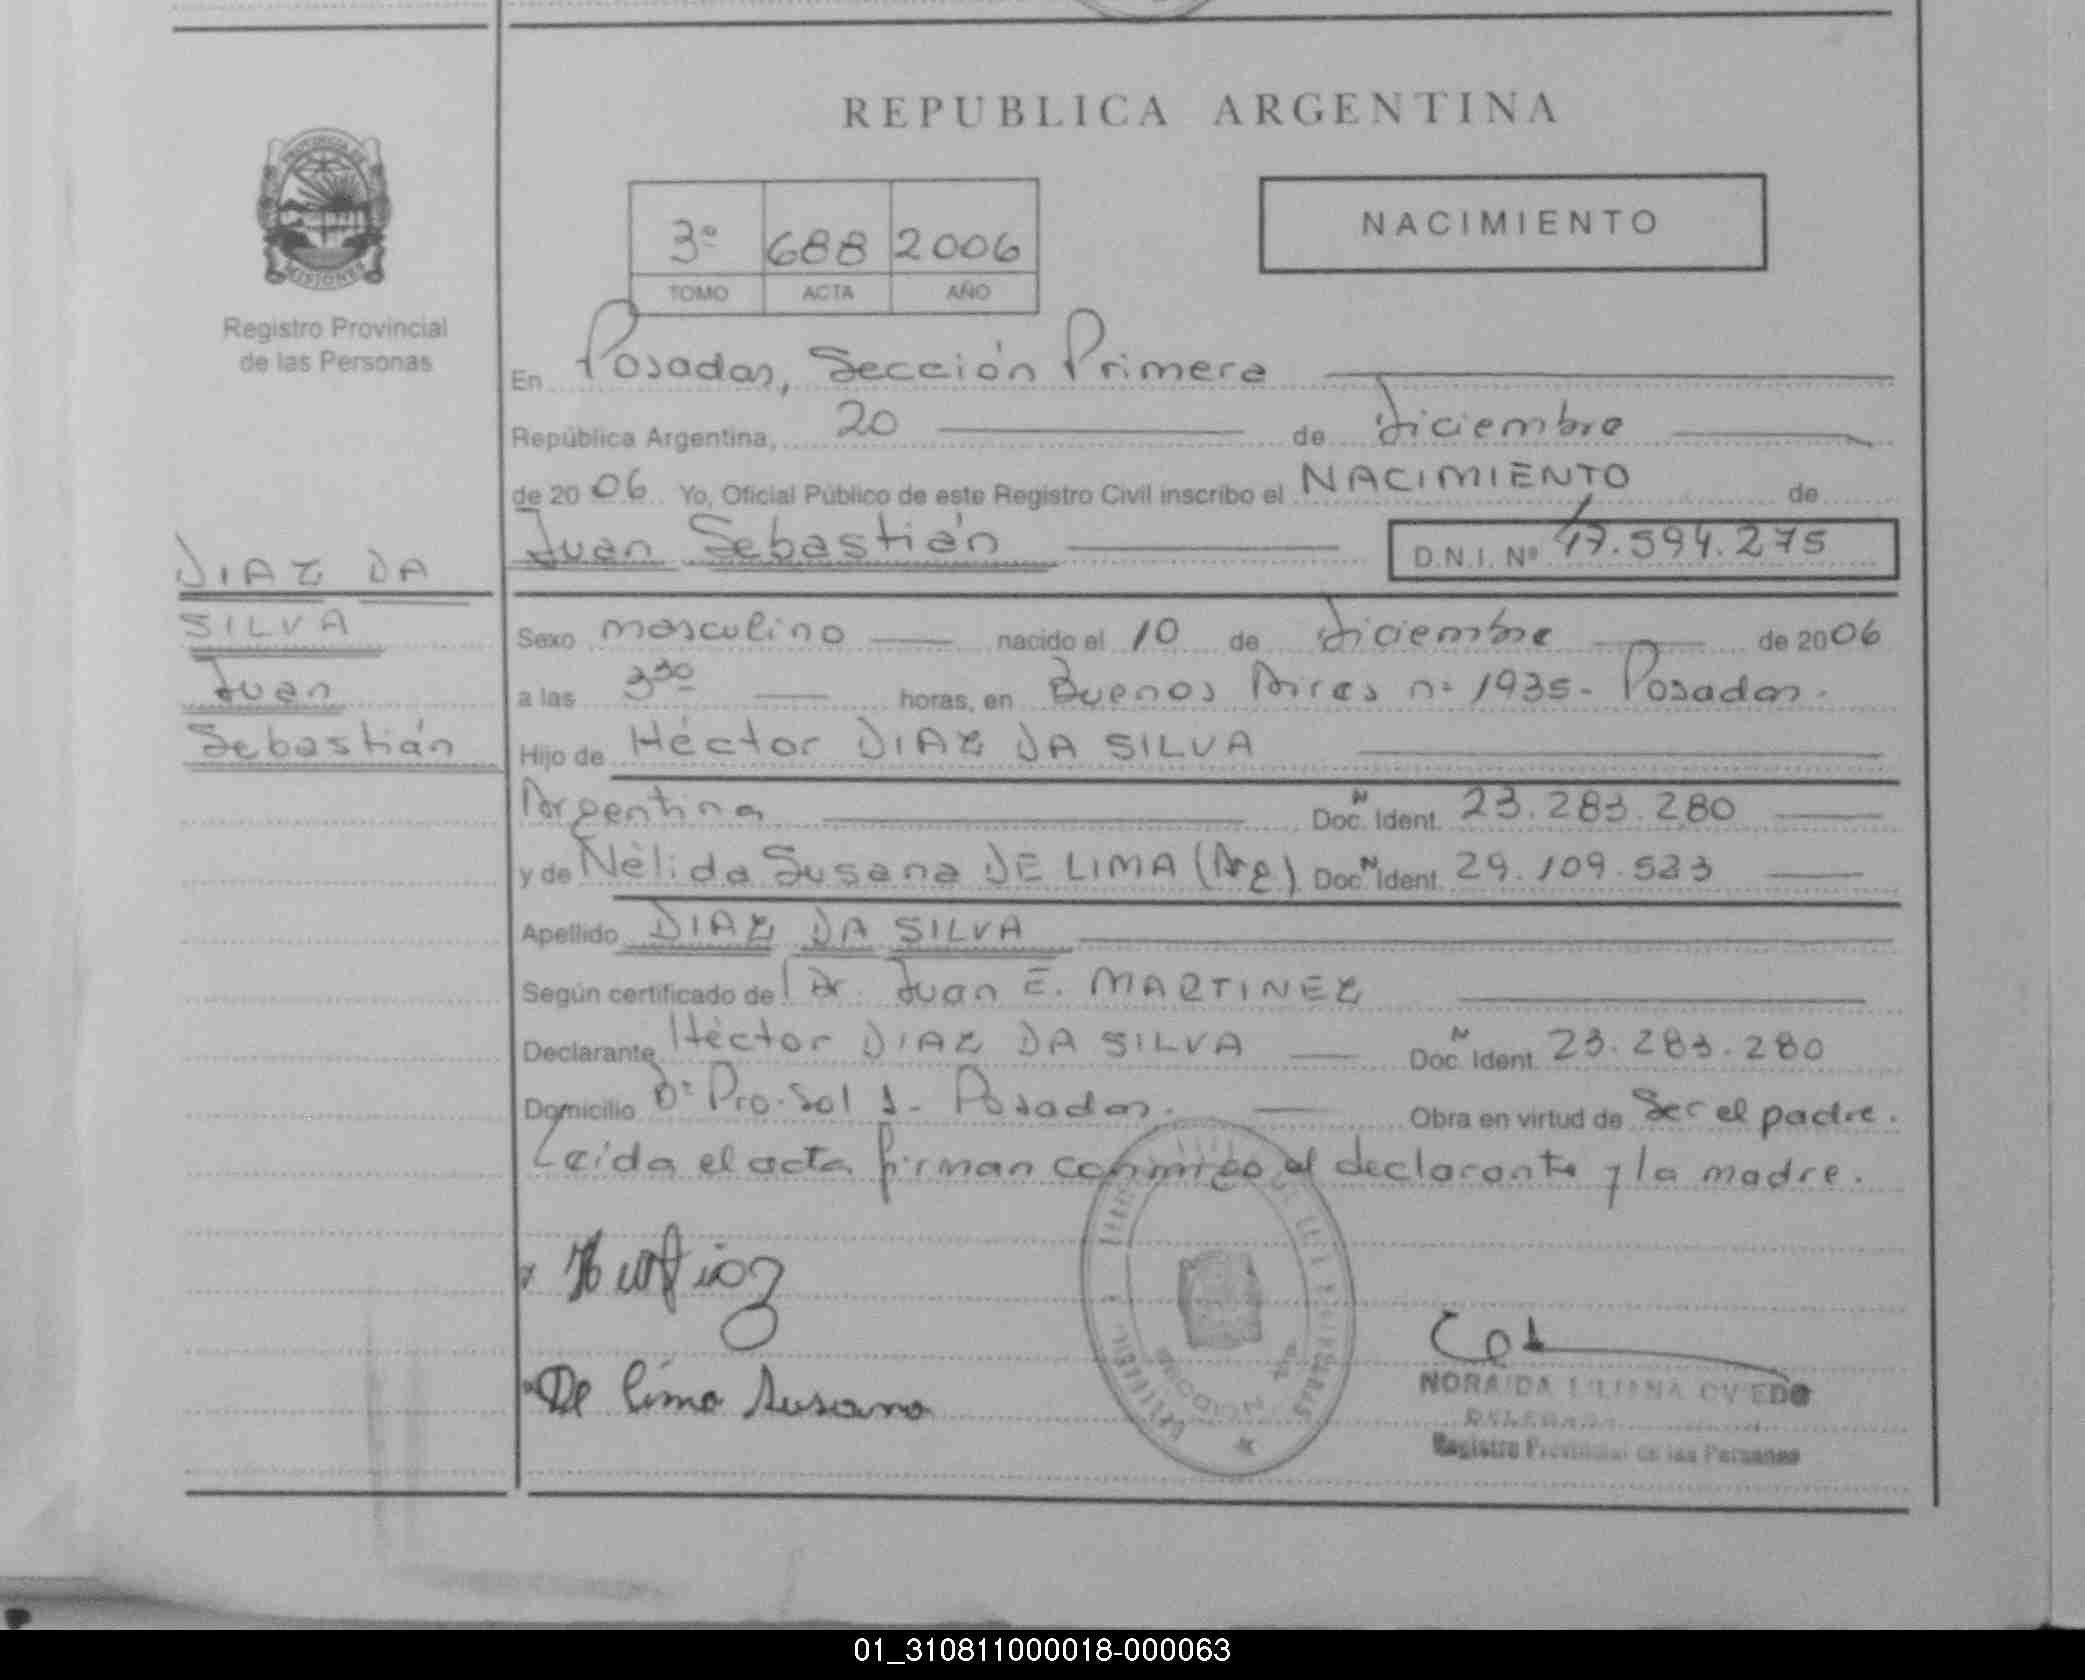 REPUBLICA ARGENTINA
PROVINCIA DE
MISIONES
Registro Provincial
de las Personas
3º 688 2006
TOMO ACTA AÑO
NACIMIENTO
En Posadas, Sección Primera
República Argentina, 20 de diciembre
de 2006 Yo, Oficial Público de este Registro Civil inscribo el NACIMIENTO de
Juan Sebastián D.N.I. Nº 47.594.275
DIAZ DA
SILVA
Juan
Sebastián
Sexo masculino nacido el 10 de diciembre de 2006
a las 3³⁰ horas, en Buenos Aires nº 1935- Posadas.
Hijo de Héctor DIAZ DA SILVA
Argentina Doc. N Ident. 23.283.280
y de Nélida Susana DE LIMA (Arg) Doc. N Ident. 29.109.523
Apellido DIAZ DA SILVA
Según certificado del Dr. Juan E. MARTINEZ
Declarante Héctor DIAZ DA SILVA Doc. N Ident. 23.283.280
Domicilio Bº Pro-Sol 1- Posadas. Obra en virtud de ser el padre.
Leída el acta firman conmigo el declarante y la madre.
De Lima Susana
NORAIDA LILIANA OVIEDO
DELEGADA
Registro Provincial de las Personas
01_310811000018-000063